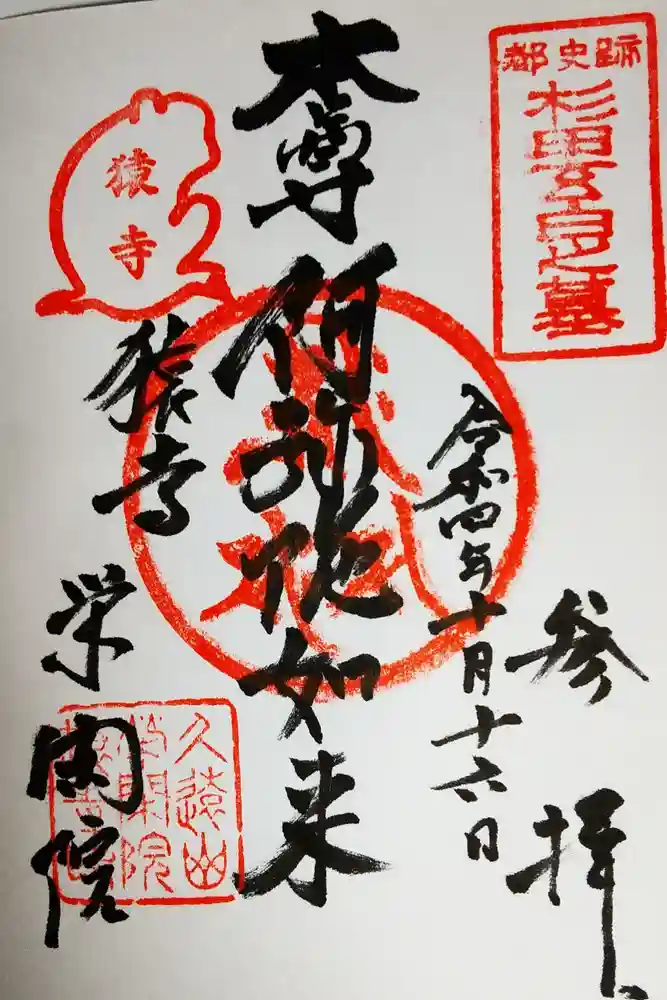 都史跡
杉田玄白之墓
参拝
令和四年十月十六日
本尊
阿弥陀如来
猿寺
猿寺
栄閑院
久遠山
栄閑院